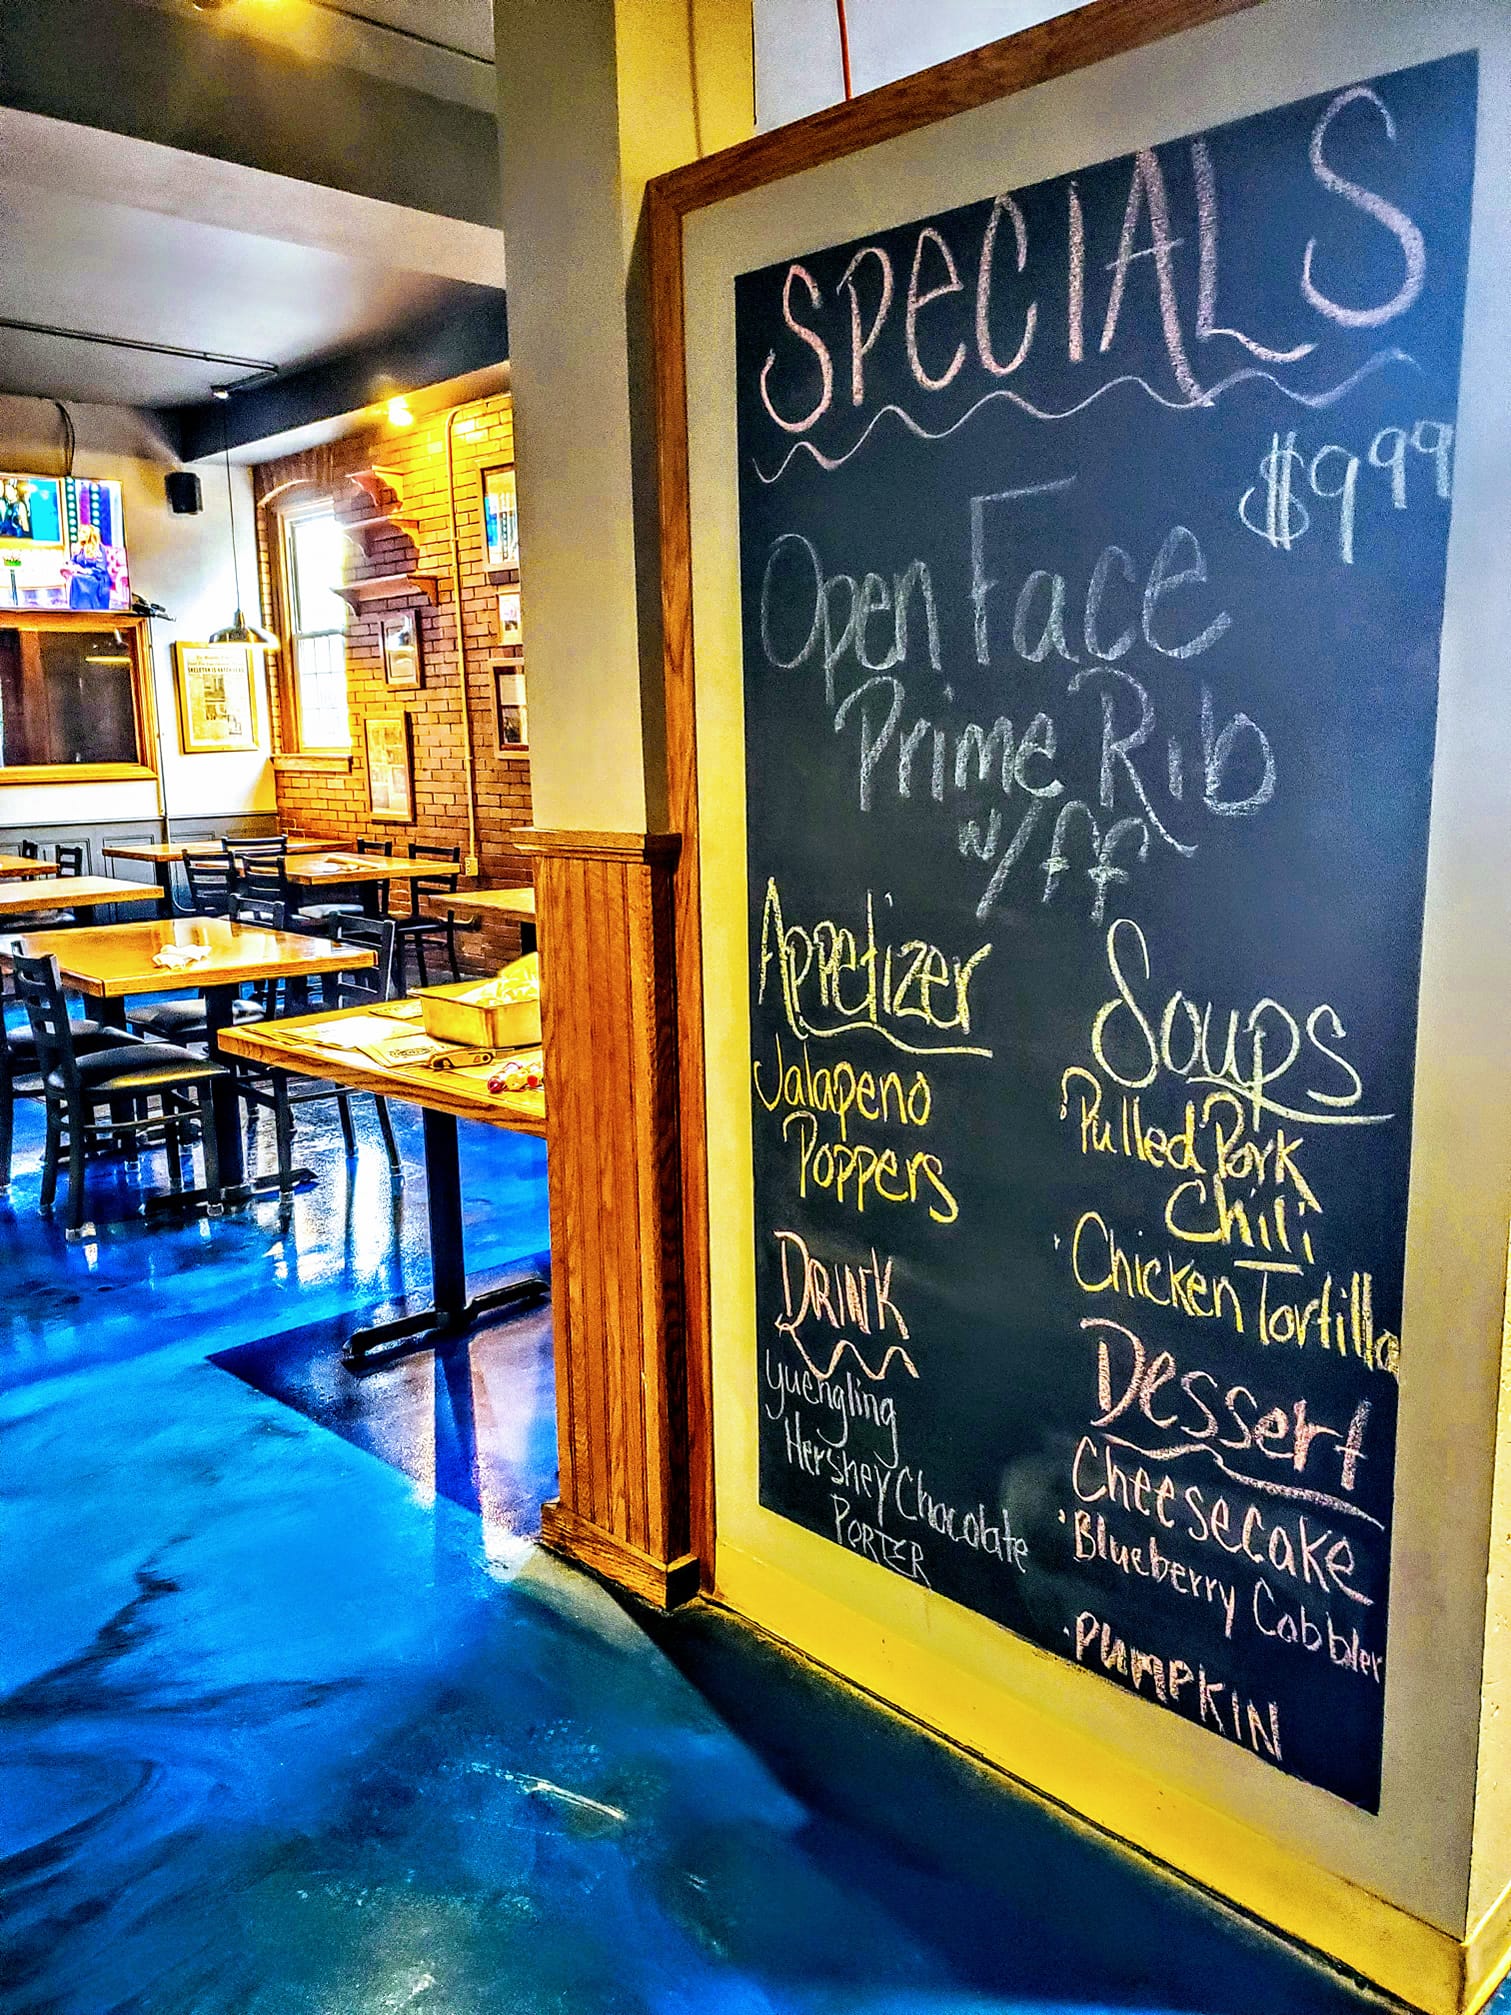 SPECIALS
$9.99
Open Face
Prime Rib
w/ff
Appetizer
Jalapeno
Poppers
Soups
·Pulled Pork
Chili
·Chicken Tortilla
DRINK
Yuengling
Hershey Chocolate
PORTER
Dessert
Cheesecake
·Blueberry Cobbler
·PUMPKIN